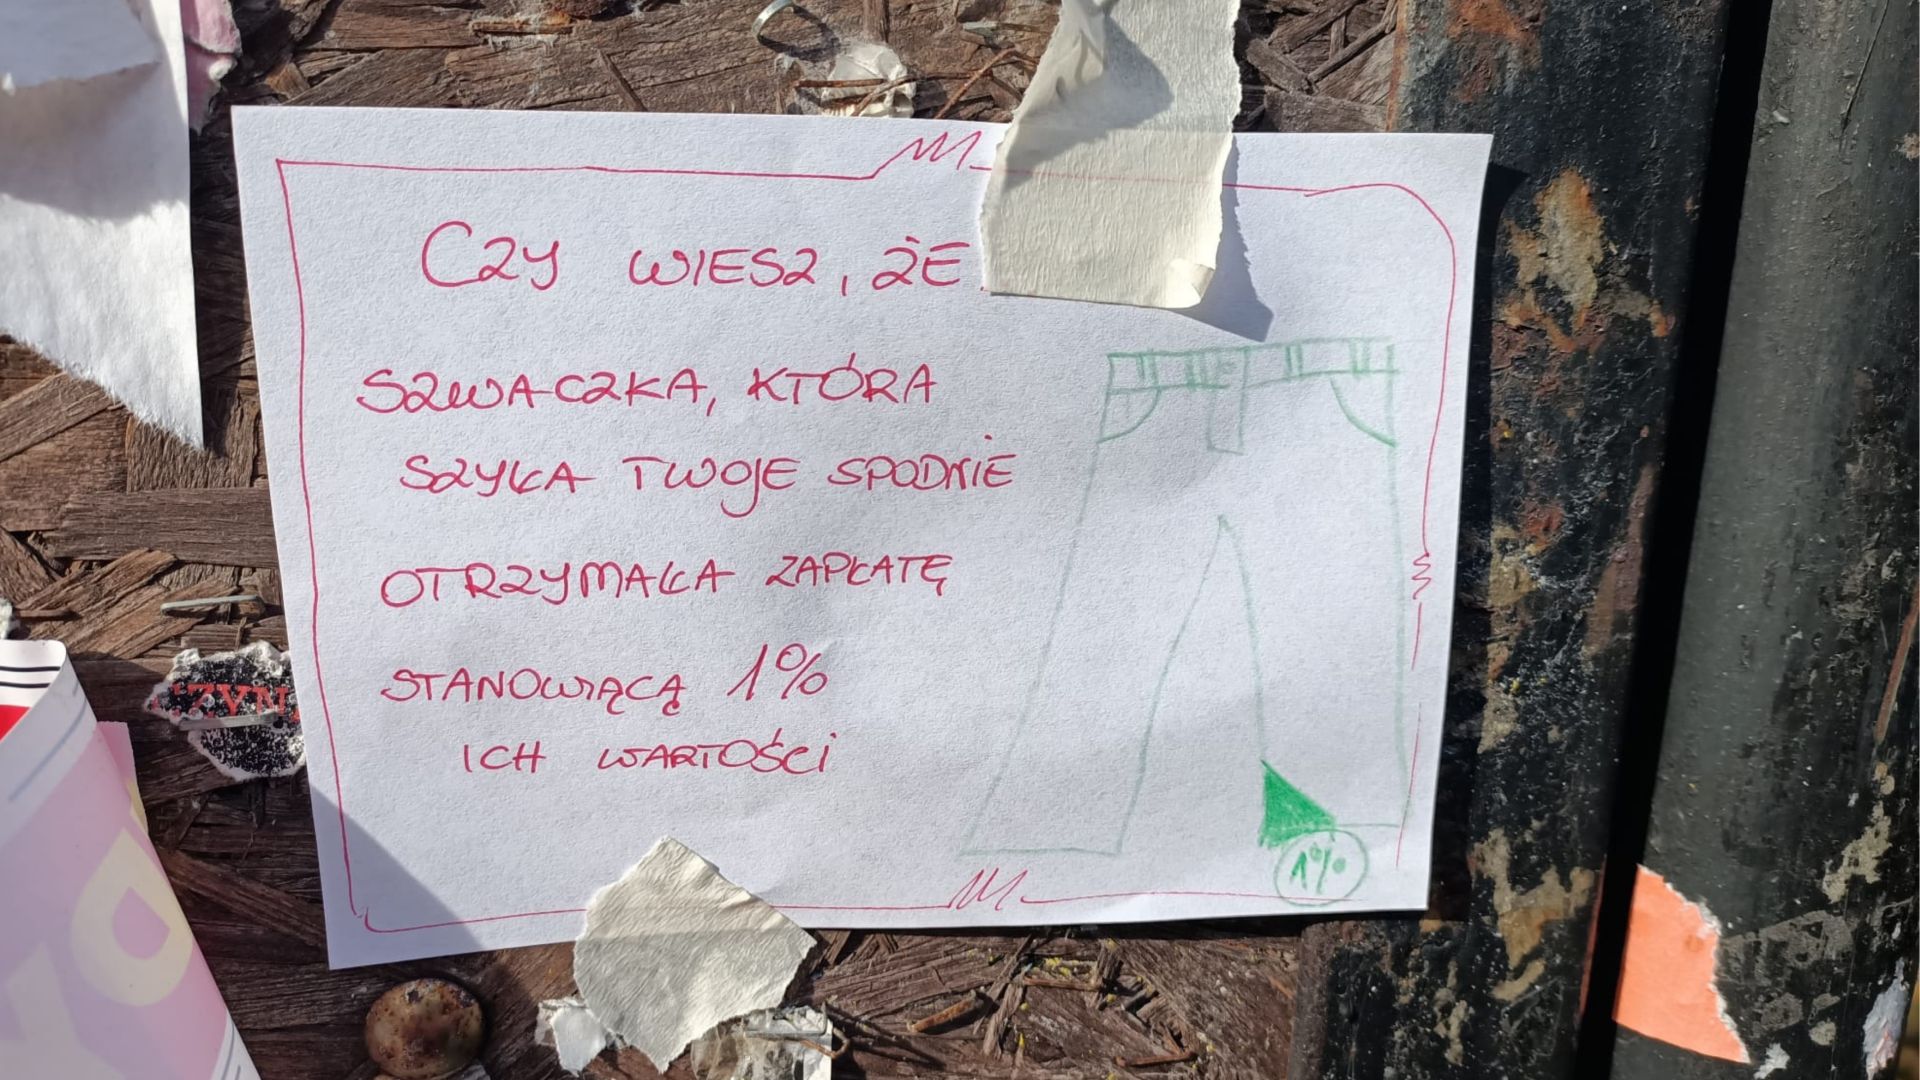 CZY WIESZ, ŻE
SZWACZKA, KTÓRA
SZYŁA TWOJE SPODNIE
OTRZYMAŁA ZAPŁATĘ
STANOWIĄCĄ 1%
ICH WARTOŚCI
1%